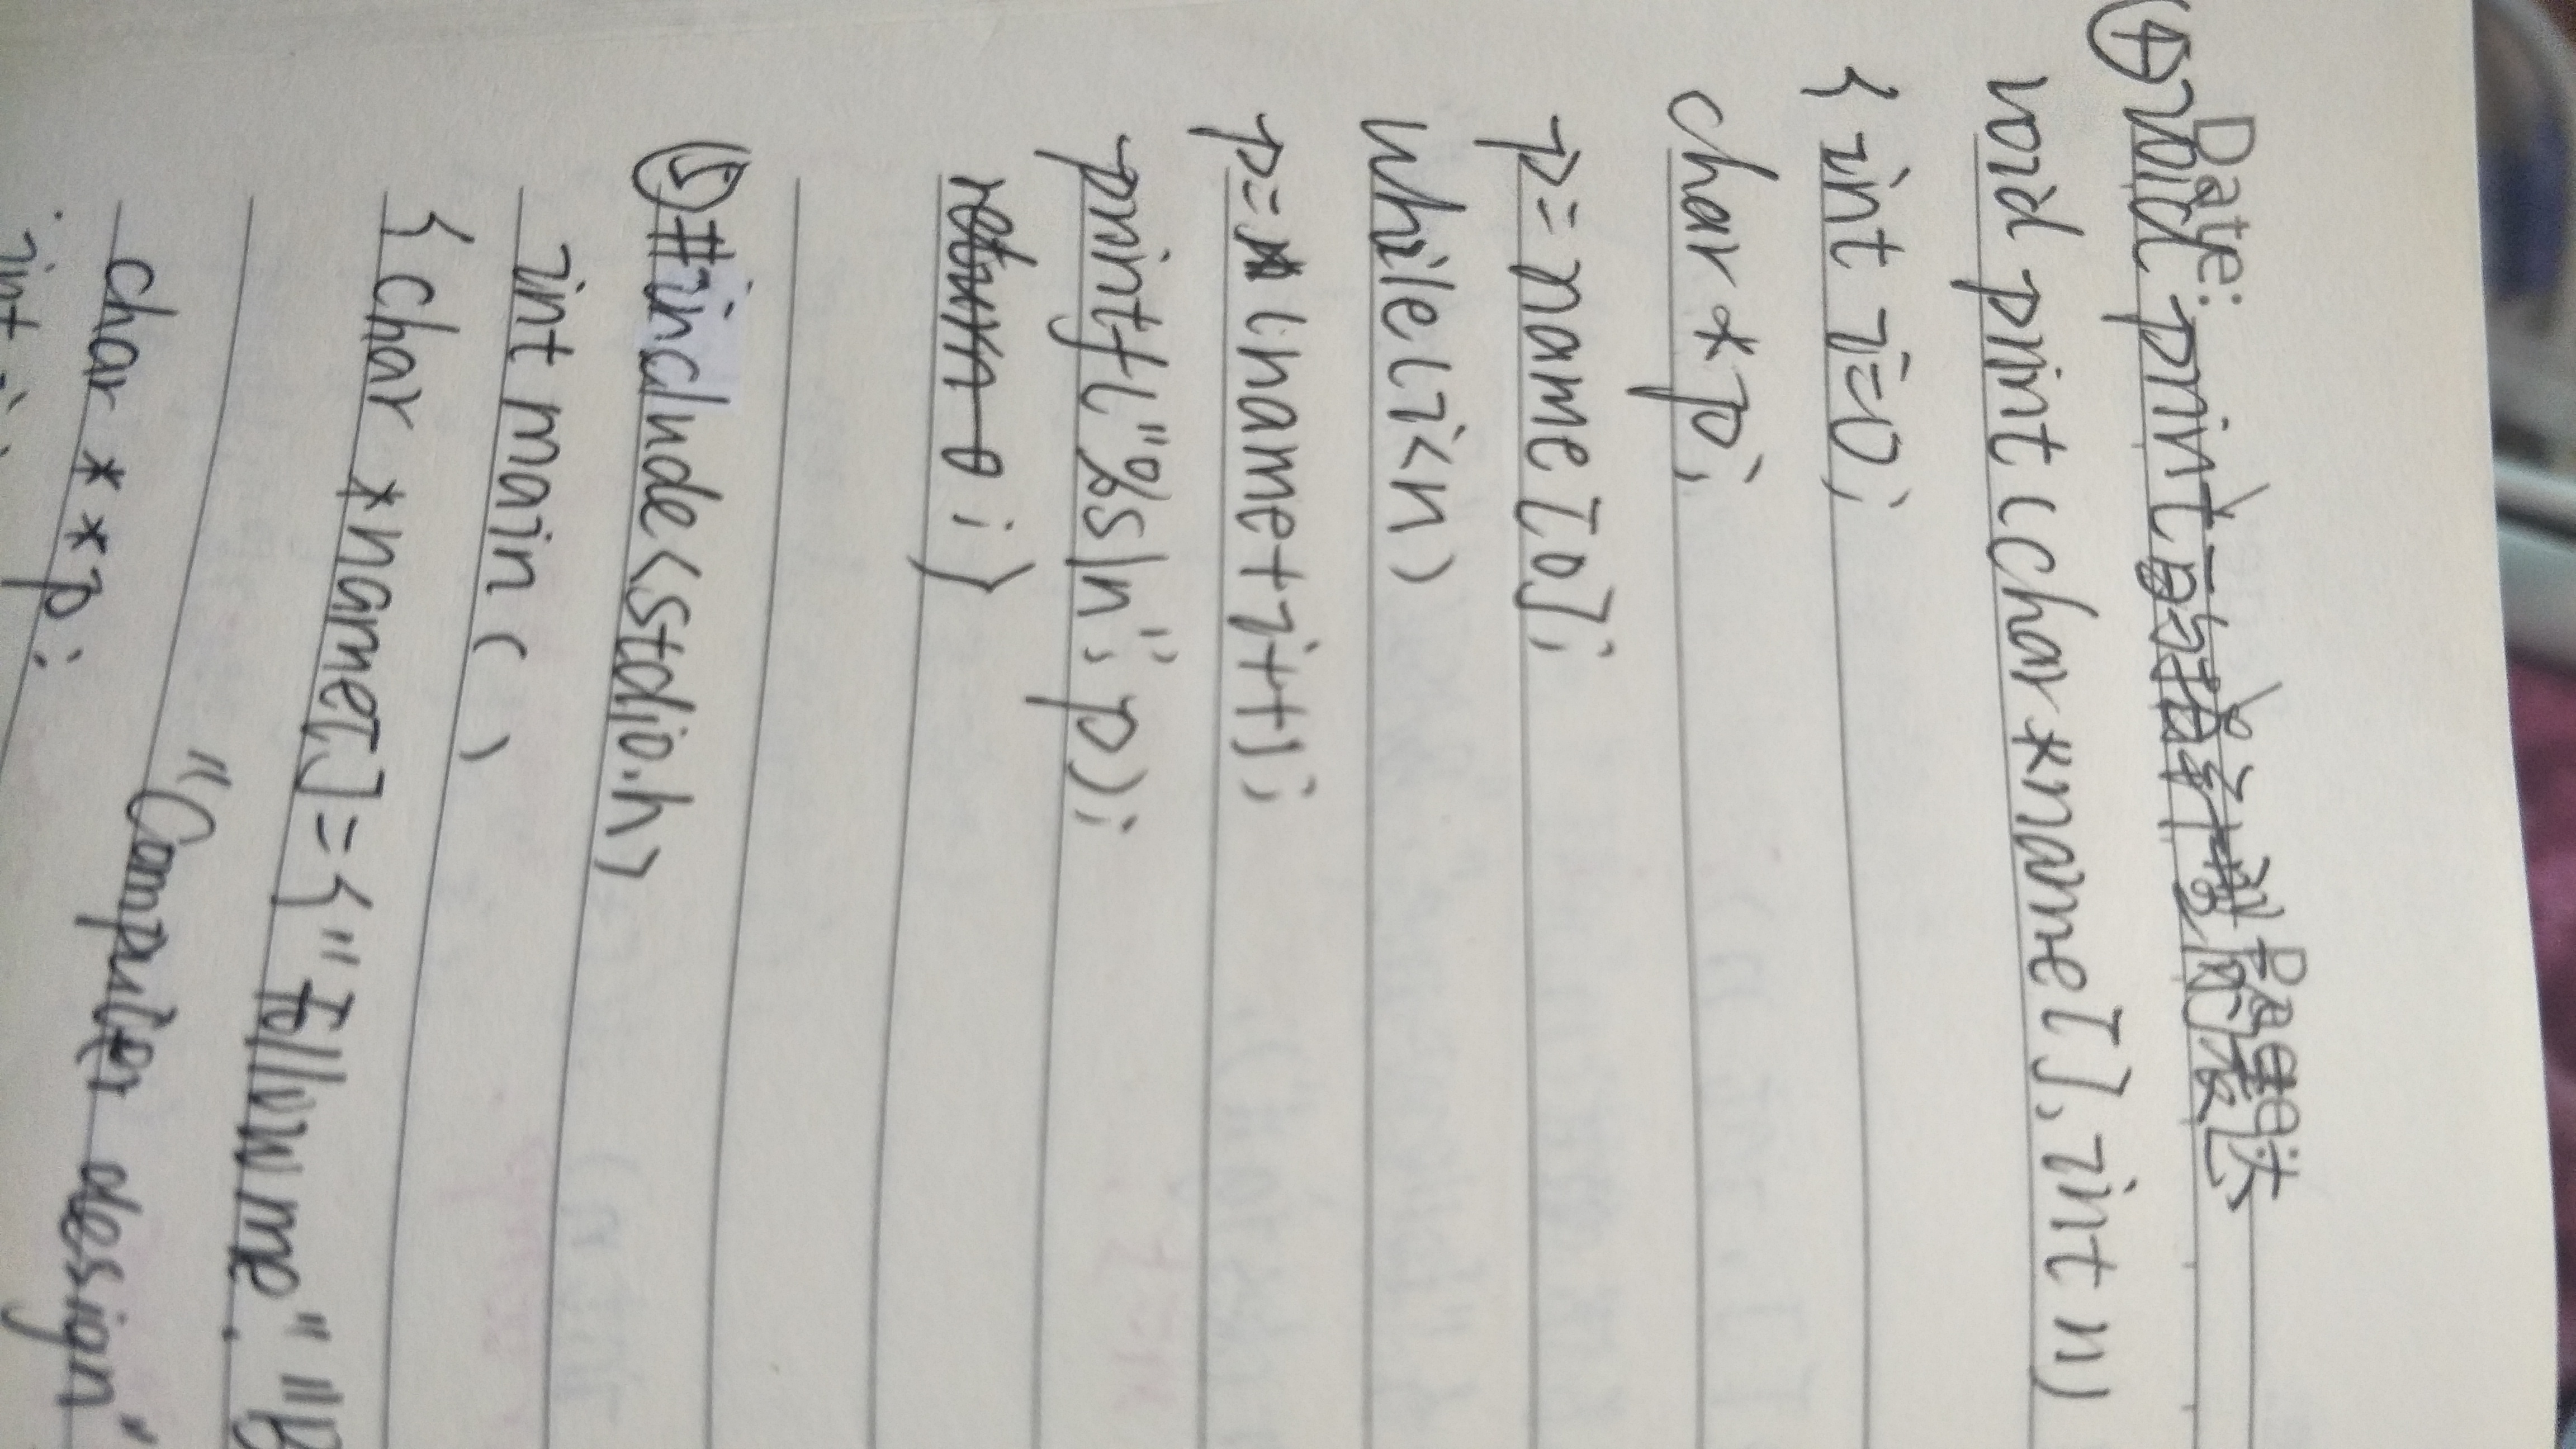 Date: Page:
④void print的指针型的表达
void print(char *name[], int n)
{ int i=0;
char *p;
p=name[0];
while(i<n)
p=*(name+i++);
printf("%s\n", p);
return 0;}
⑤#include<stdio.h>
int main( )
{ char *name[]={"Follow me"."B
"Computer design"
char **p;
int i;